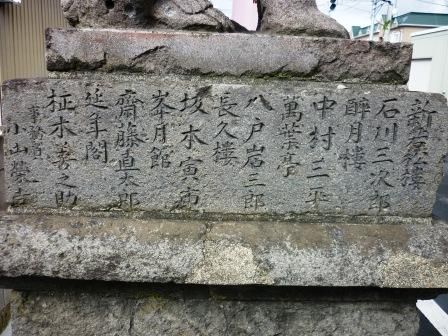 新萬松樓
石川三次郎
醉月樓
中村三平
萬葉亭
八戸岩三郎
長久樓
坂木寅市
峯月館
齋藤直太郎
延年閣
柾木善之助
事務員
小山榮吉